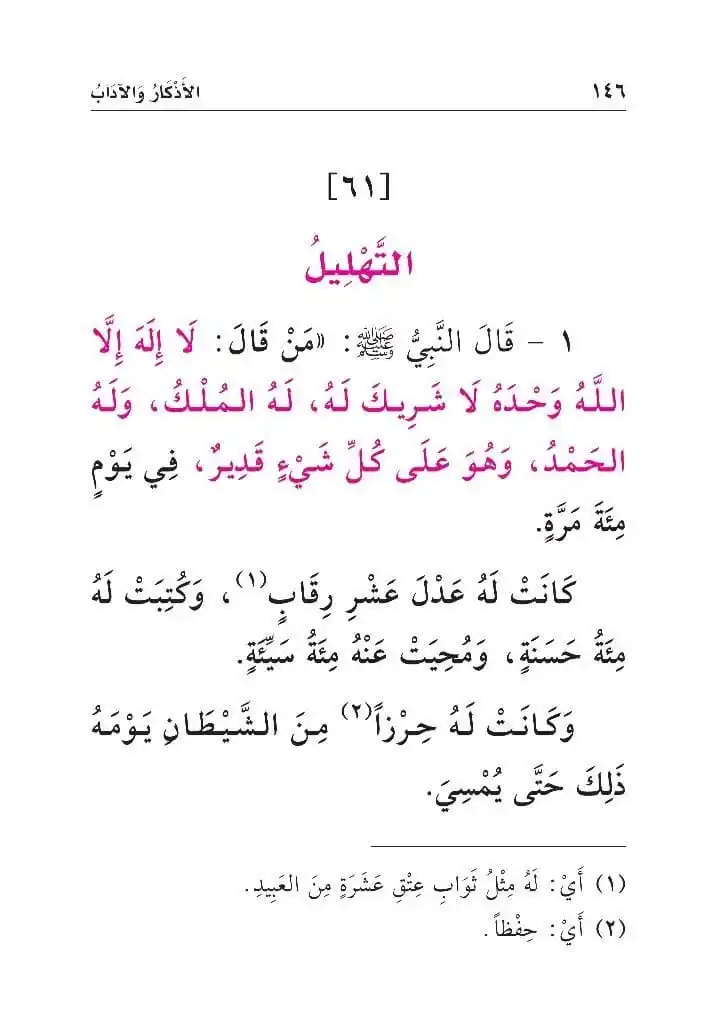 ١٤٦ الأَذْكَارُ وَالآدَابُ
[٦١]
التَّهْلِيلُ
١ - قَالَ النَّبِيُّ ﷺ: «مَنْ قَالَ: لَا إِلَهَ إِلَّا
اللَّهُ وَحْدَهُ لَا شَرِيكَ لَهُ، لَهُ المُلْكُ، وَلَهُ
الحَمْدُ، وَهُوَ عَلَى كُلِّ شَيْءٍ قَدِيرٌ، فِي يَوْمٍ
مِئَةَ مَرَّةٍ.
كَانَتْ لَهُ عَدْلَ عَشْرِ رِقَابٍ(١)، وَكُتِبَتْ لَهُ
مِئَةُ حَسَنَةٍ، وَمُحِيَتْ عَنْهُ مِئَةُ سَيِّئَةٍ.
وَكَانَتْ لَهُ حِرْزاً(٢) مِنَ الشَّيْطَانِ يَوْمَهُ
ذَلِكَ حَتَّى يُمْسِيَ.
(١) أَيْ: لَهُ مِثْلُ ثَوَابِ عِتْقِ عَشَرَةٍ مِنَ العَبِيدِ.
(٢) أَيْ: حِفْظاً.